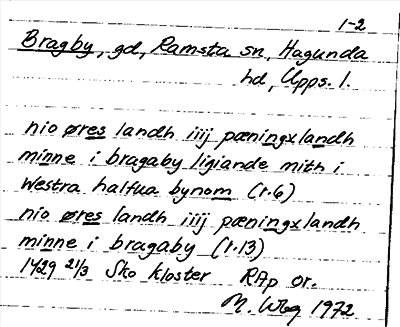 1-2
Bragby, gd, Ramsta sn, Hagunda
hd, Upps. l.
nio øres landh iiij pæningxlandh
minne i bragaby ligiande mith i
westra halfua bynom (r.6)
nio øres landh iiij pæningxlandh
minne i bragaby (r.13)
1429 21/3 Sko kloster RAp or.
M. Wbg 1972